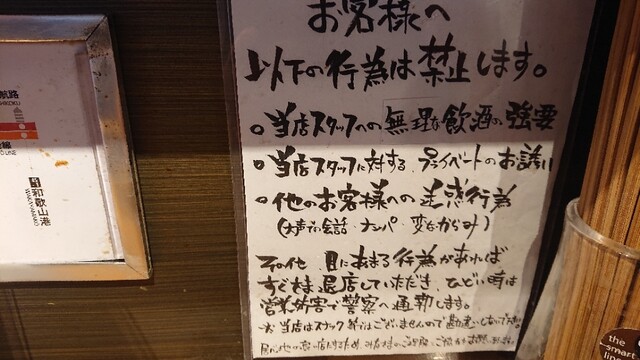 お客様へ
以下の行為は禁止します。
○当店スタッフへの無理な飲酒の強要
○当店スタッフに対する、プライベートのお誘い
○他のお客様への迷惑行為
(大声での会話・ナンパ・変なからみ)
その他 目にあまる行為があれば
すぐさま退店していただき、ひどい時は
営業妨害で警察へ通報します。
当店はスナック等ではございませんので勘違いしないで下さい。
航路
SHIKOKU
線
和歌山港
WAKAYAMAKO
the
smart
line